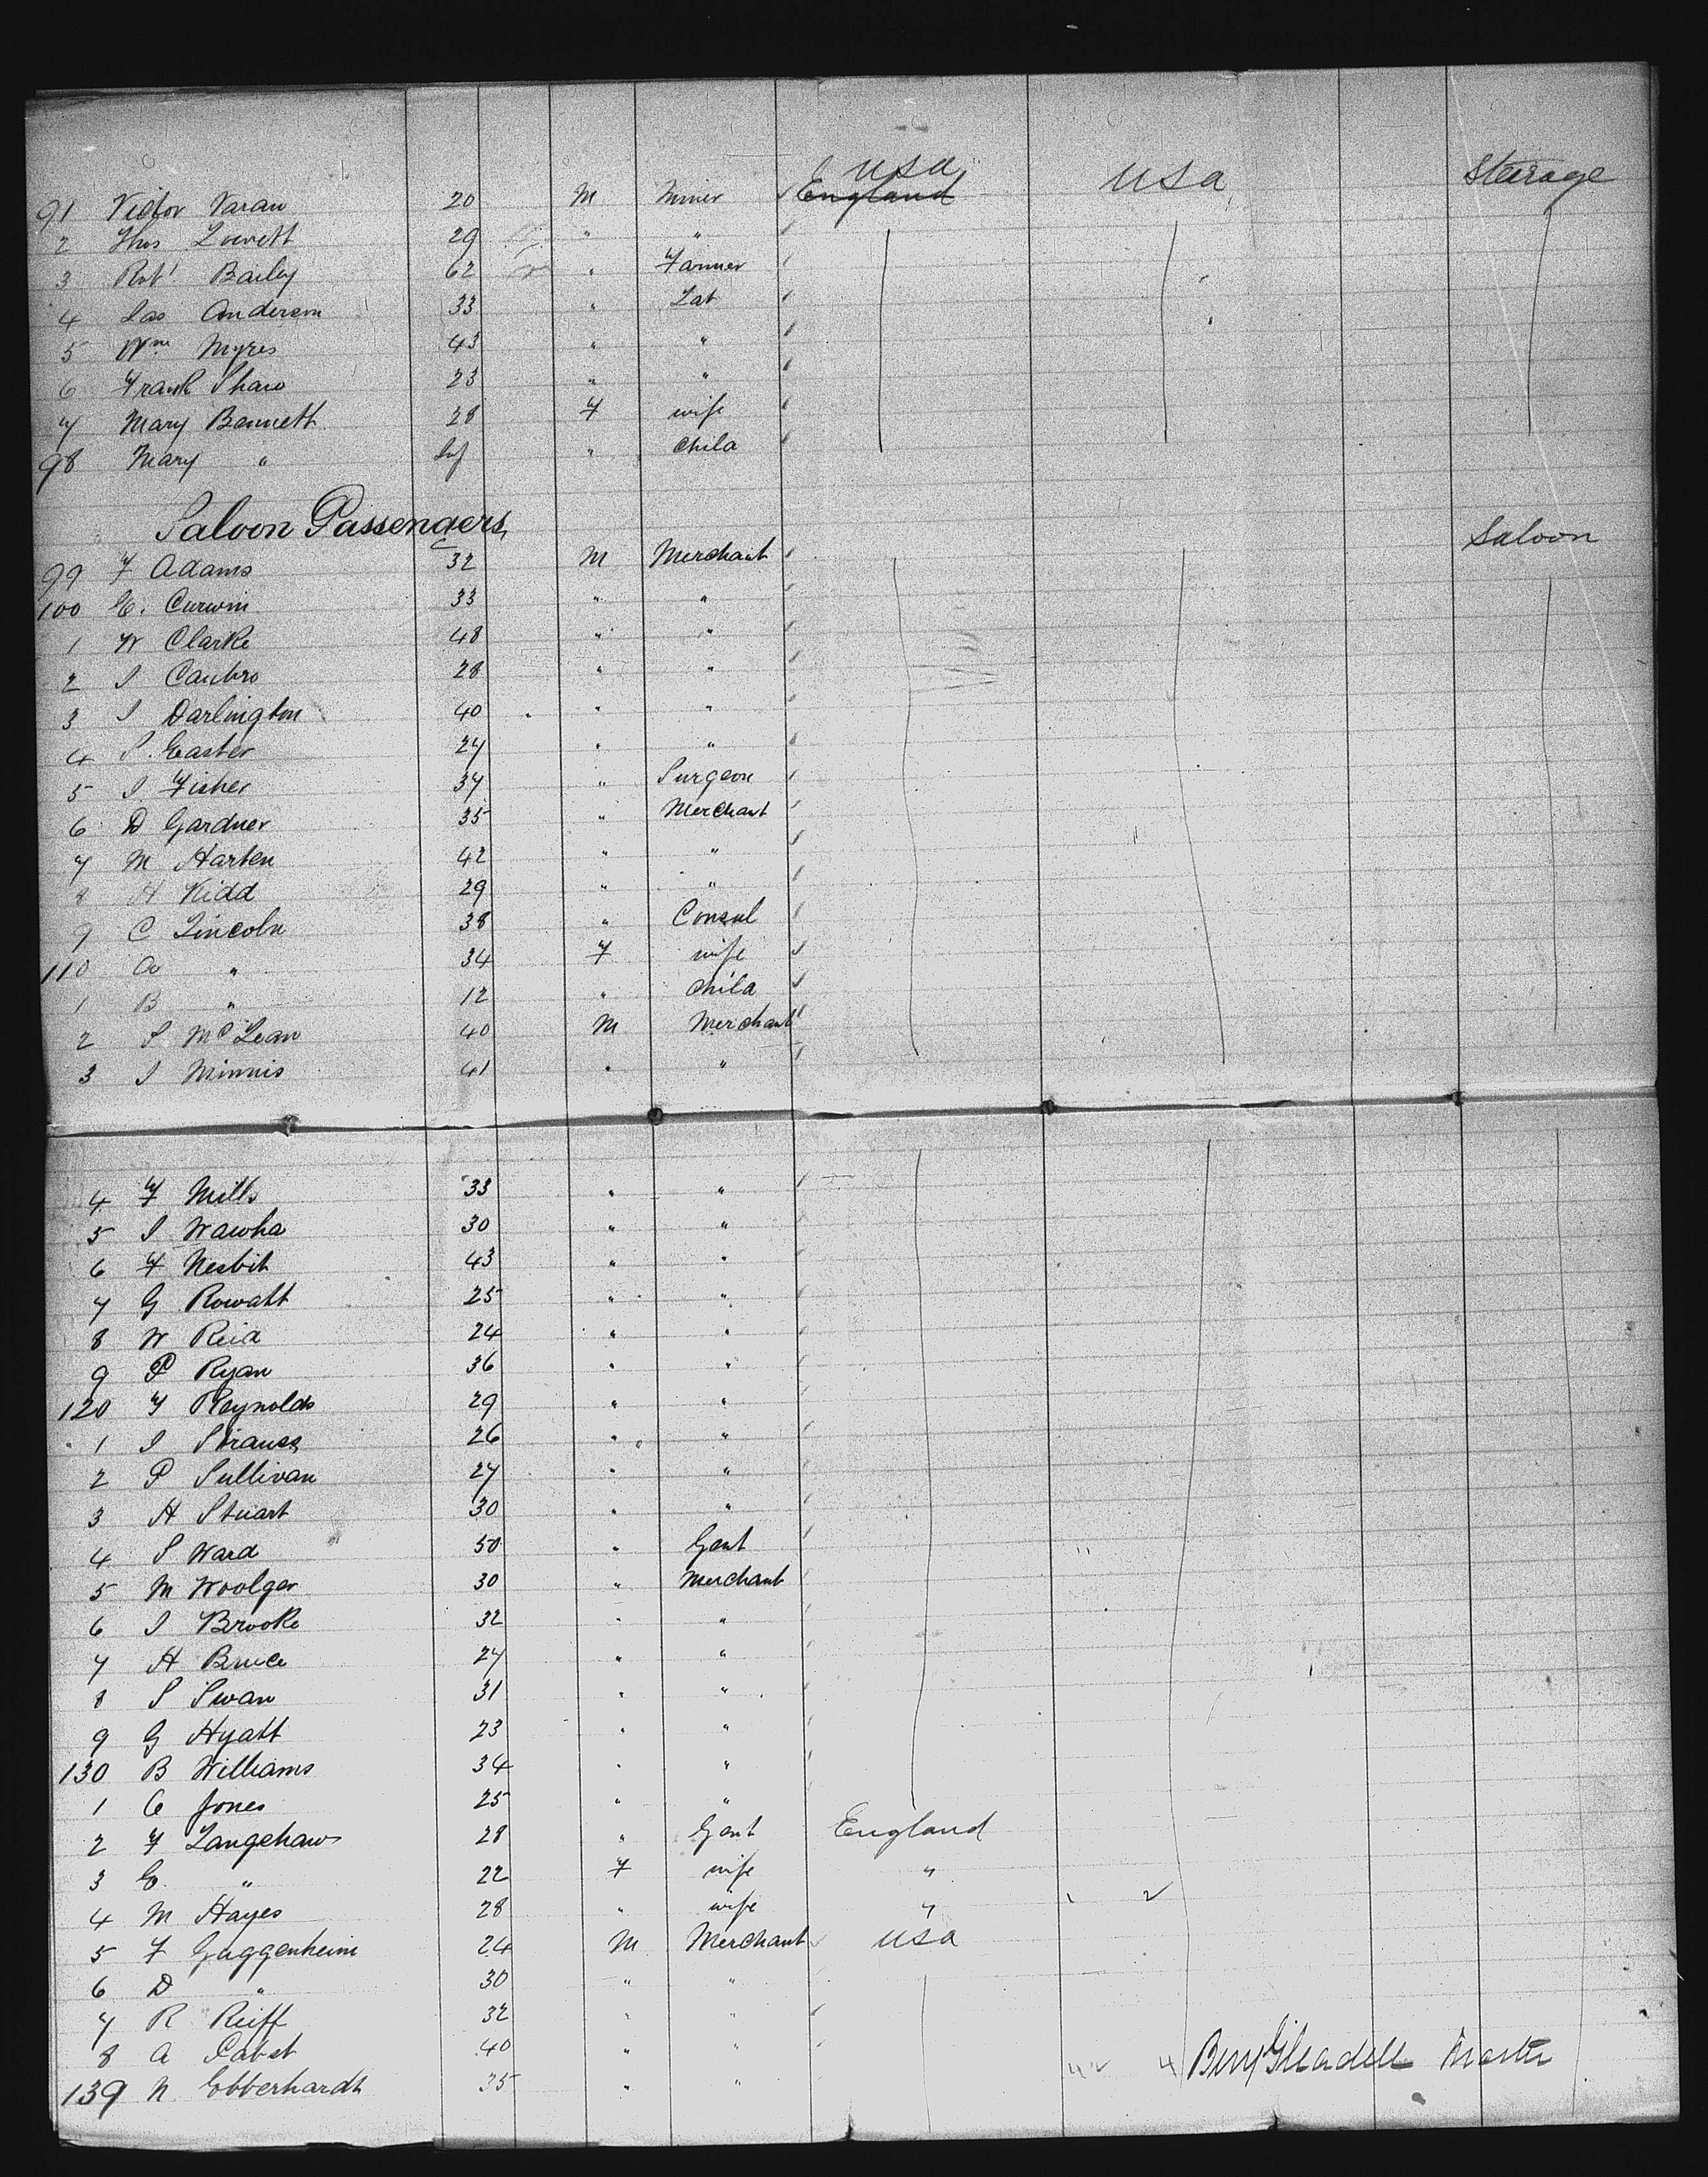 91 Victor Varan 20 M Miner England USA USA Steerage
2 Thos Loevett 29 " "
3 Robt Bailey 62 " Farmer
4 Jas Anderson 33 " Lab
5 Wm Myres 43 " "
6 Frank Shaw 23 " "
7 Mary Bennett 28 F wife
98 Mary " Inf " Child
Saloon Passengers
99 F Adams 32 M Merchant Saloon
100 E. Curwin 33 " "
1 W Clarke 48 " "
2 J 28 " "
3 J Darlington 40 " "
4 S. Easter 27 " "
5 J Fisher 37 " Surgeon
6 D Gardner 35 " Merchant
7 M Harten 42 " "
8 H Kidd 29 " "
9 C Lincoln 38 " Consul
110 A " 34 F wife
1 B " 12 " Child
2 S McLean 40 M Merchant
3 J Minnis 41 " "
4 F Mills 33 " "
5 J Wawha 30 " "
6 F Nesbit 43 " "
7 G Rowatt 25 " "
8 W Reid 24 " "
9 P Ryan 36 " "
120 F Reynolds 29 " "
1 J Strauss 26 " "
2 P Sullivan 27 " "
3 H Stuart 30 " "
4 S Ward 50 " Gent
5 M Woolger 30 " Merchant
6 J Brooke 32 " "
7 H Bruce 27 " "
8 S Swan 31 " "
9 G Hyatt 23 " "
130 B Williams 34 " "
1 C Jones 25 " "
2 F Langehaws 28 " Gent England
3 E. " 22 F wife "
4 M Hayes 28 " wife "
5 F Guggenheim 24 M Merchant USA
6 D " 30 " "
7 R Reiff 32 " "
8 A Pabst 40 " "
139 N. Ebberhardt 35 " "
Benj Gleadell Master